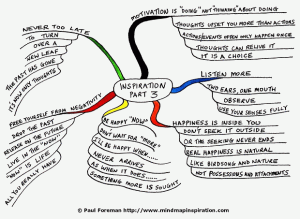 INSPIRATION
PART 3
MOTIVATION IS "DOING" NOT "THINKING" ABOUT DOING
THOUGHTS UPSET YOU MORE THAN ACTIONS
ACTIONS/EVENTS OFTEN ONLY HAPPEN ONCE
THOUGHTS CAN RELIVE IT
IT IS A CHOICE
LISTEN MORE
TWO EARS, ONE MOUTH
OBSERVE
USE YOUR SENSES FULLY
HAPPINESS IS INSIDE YOU
DON'T SEEK IT OUTSIDE
OR THE SEEKING NEVER ENDS
REAL HAPPINESS IS NATURAL
LIKE BIRDSONG AND NATURE
NOT POSSESSIONS AND ATTACHMENTS
BE HAPPY "NOW"
DON'T WAIT FOR "MORE"
I'LL BE HAPPY WHEN....
NEVER ARRIVES
AS WHEN IT DOES....
SOMETHING MORE IS SOUGHT
FREE YOURSELF FROM NEGATIVITY
DROP THE PAST
RELEASE THE FUTURE
LIVE IN THE "NOW"
"NOW" IS LIFE
ALL YOU REALLY HAVE
NEVER TOO LATE
TO TURN
OVER A
NEW LEAF
THE PAST HAS GONE
IT'S NOW ONLY THOUGHTS
© Paul Foreman http://www.mindmapinspiration.com